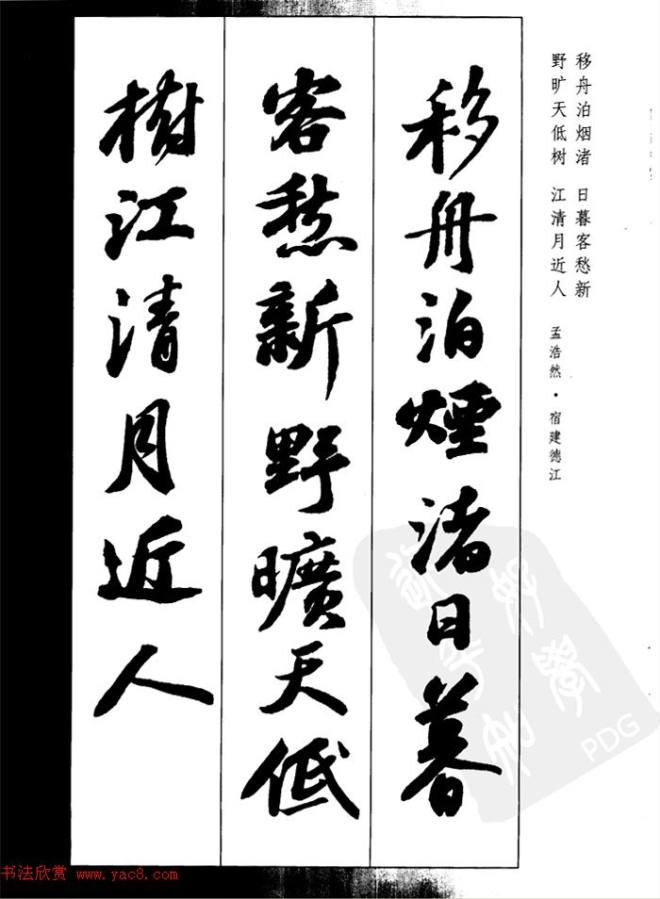 移舟泊烟渚 日暮客愁新
野旷天低树 江清月近人
孟浩然·宿建德江
移舟泊煙渚日暮
客愁新野曠天低
樹江清月近人
PDG
书法欣赏 www.yac8.com